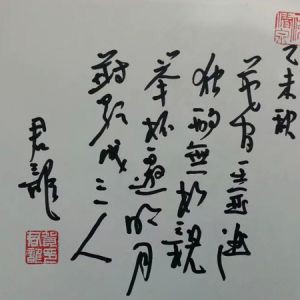 乙未秋
花間一壺酒
独酌無相親
举杯邀明月
對影成三人
君龍